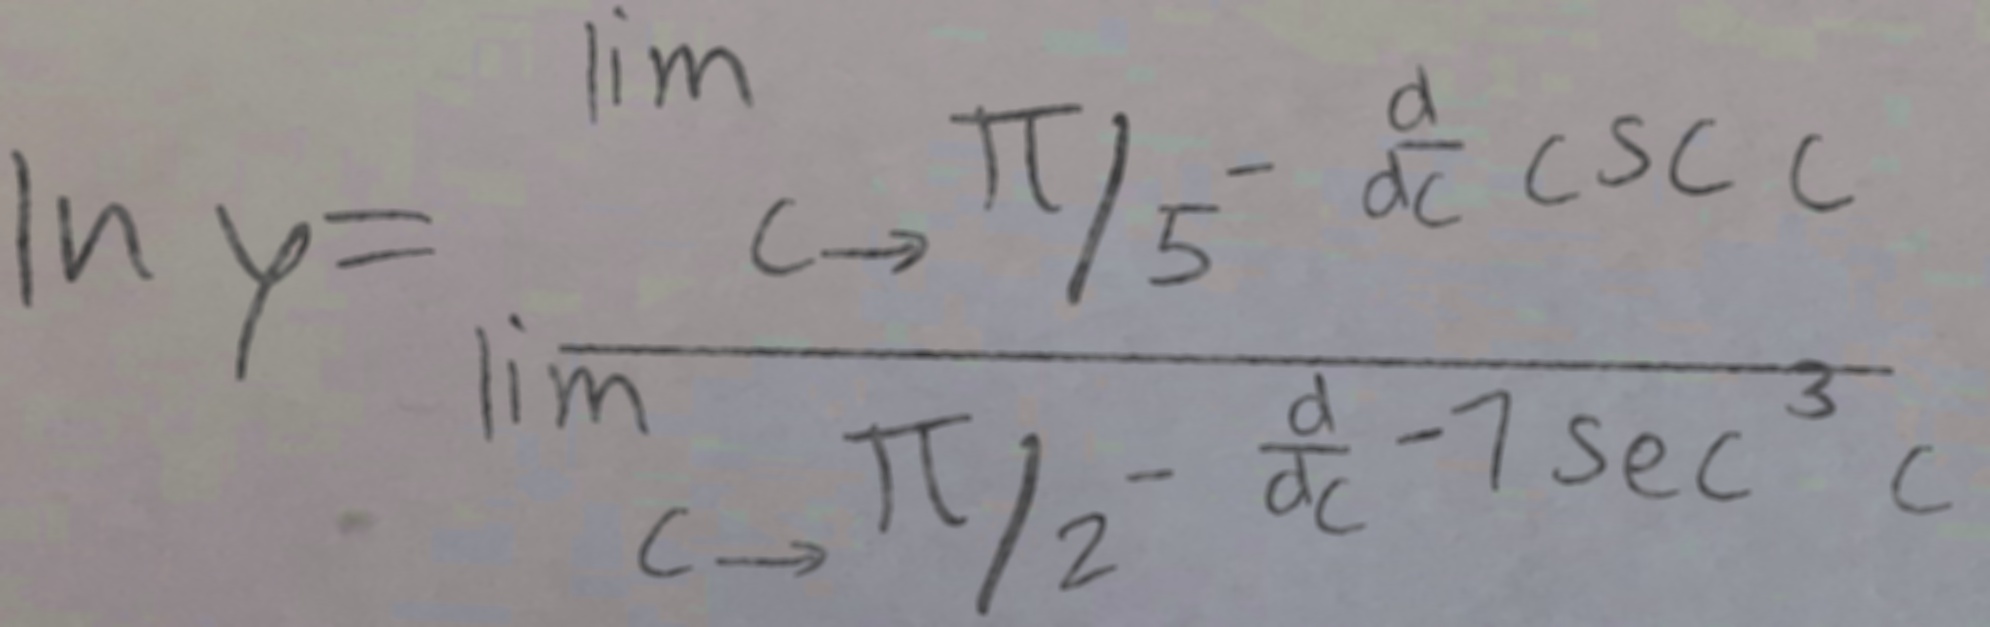 ln y = \frac{\lim_{c \to \pi/5^-} \frac{d}{dc} csc c}{\lim_{c \to \pi/2^-} \frac{d}{dc} -7 sec^3 c}